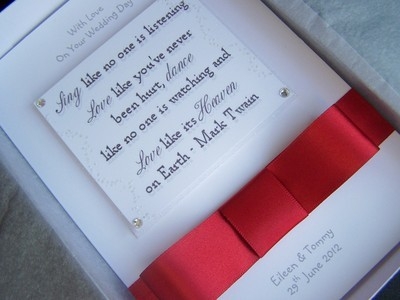 With Love
On Your Wedding Day
Sing like no one is listening
Love like you've never
been hurt, dance
like no one is watching and
Love like its Heaven
on Earth - Mark Twain
Eileen & Tommy
29th June 2012